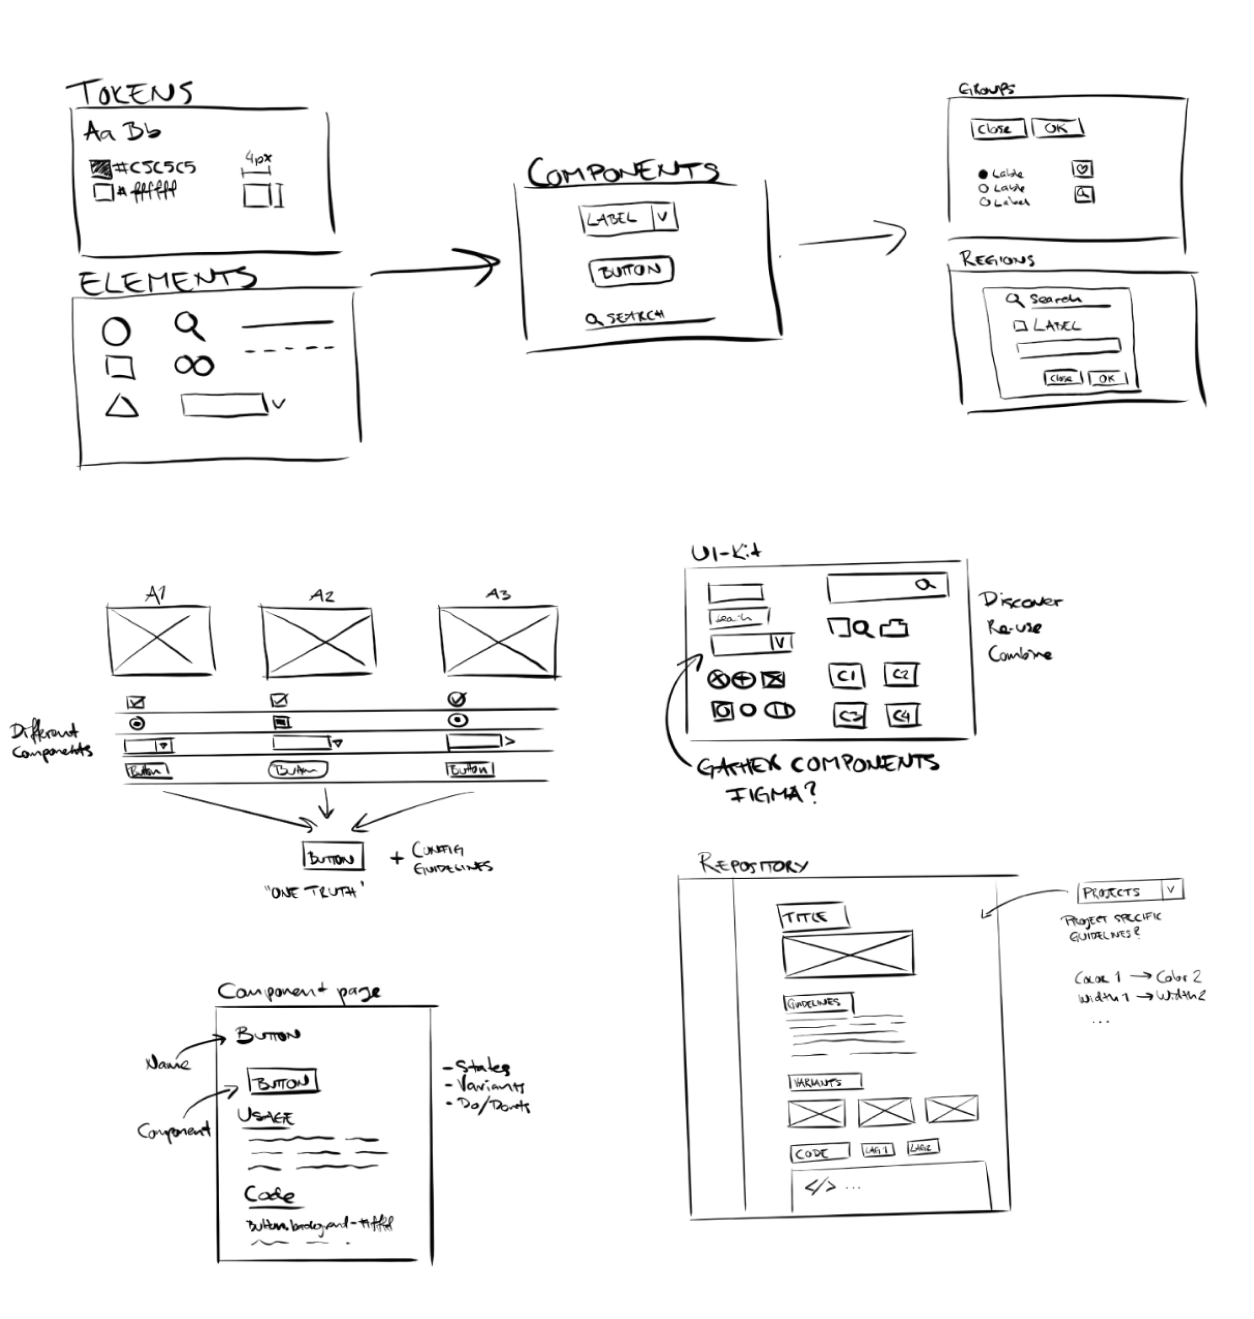 TOKENS
Aa Bb
#C5C5C5
4px
# ffffff
ELEMENTS
COMPONENTS
LABEL
BUTTON
SEARCH
GROUPS
Close
OK
Lable
Lable
Label
REGIONS
Search
LABEL
Close
OK
A1
A2
A3
Different
Components
Button
Button
Button
BUTTON
+ CONFIG
GUIDELINES
"ONE TRUTH"
UI-Kit
Search
C1
C2
C3
C4
Discover
Re-use
Combine
GATHER COMPONENTS
FIGMA?
Component page
BUTTON
Name
BUTTON
Component
USAGE
Code
- States
- Variants
- Do/Donts
REPOSITORY
TITLE
GUIDELINES
VARIANTS
CODE
</> ...
PROJECTS
PROJECT SPECIFIC
GUIDELINES?
Color 1 → Color 2
Width 1 → Width 2
...